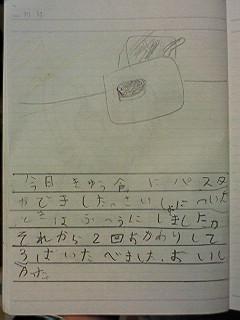 今日きゅう食にパスタ
がでました。さいしょについた
ときはふつうにしました。
それから2回おかわりして
3ばいたべました。おいし
かった。